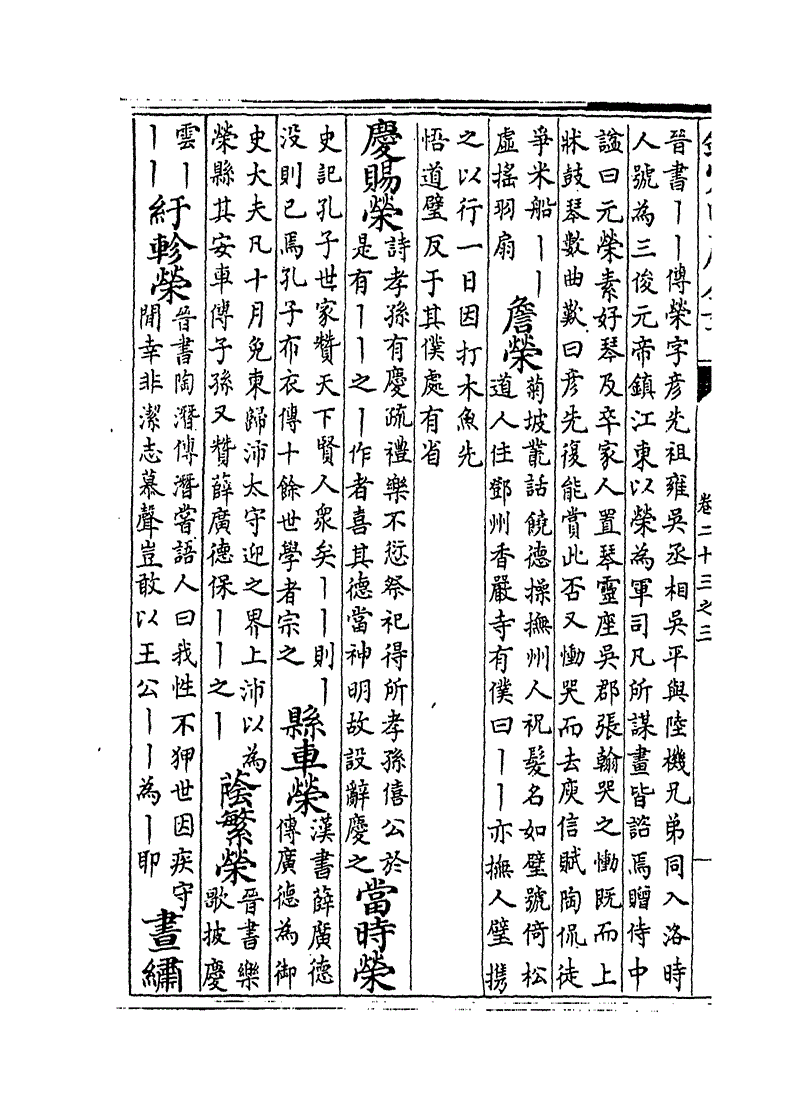 卷二十三之三
晉書丨丨傳榮字彦先祖雍吳丞相吳平與陸機兄弟同入洛時
人號為三俊元帝鎮江東以榮為軍司凡所謀畫皆諮焉贈侍中
諡曰元榮素好琴及卒家人置琴靈座吳郡張翰哭之慟既而上
牀鼓琴數曲歎曰彦先復能賞此否又慟哭而去庾信賦陶侃徒
爭米船丨丨
虛搖羽扇
詹榮
菊坡叢話饒德操撫州人祝髮名如璧號倚松
道人住鄧州香嚴寺有僕曰丨丨亦撫人璧携
之以行一日因打木魚先
悟道璧反于其僕處有省
慶賜榮
詩孝孫有慶疏禮樂不愆祭祀得所孝孫僖公於
是有丨丨之丨作者喜其德當神明故設辭慶之
當時榮
史記孔子世家贊天下賢人衆矣丨丨則丨
没則已焉孔子布衣傳十餘世學者宗之
縣車榮
漢書薛廣德
傳廣德為御
史大夫凡十月免東歸沛太守迎之界上沛以為
榮縣其安車傳子孫又贊薛廣德保丨丨之丨
蔭繁榮
晉書樂
歌披慶
雲丨
丨丨
紆軫榮
晉書陶潛傳潛嘗語人曰我性不狎世因疾守
閒幸非潔志慕聲豈敢以王公丨丨為丨耶
晝繡